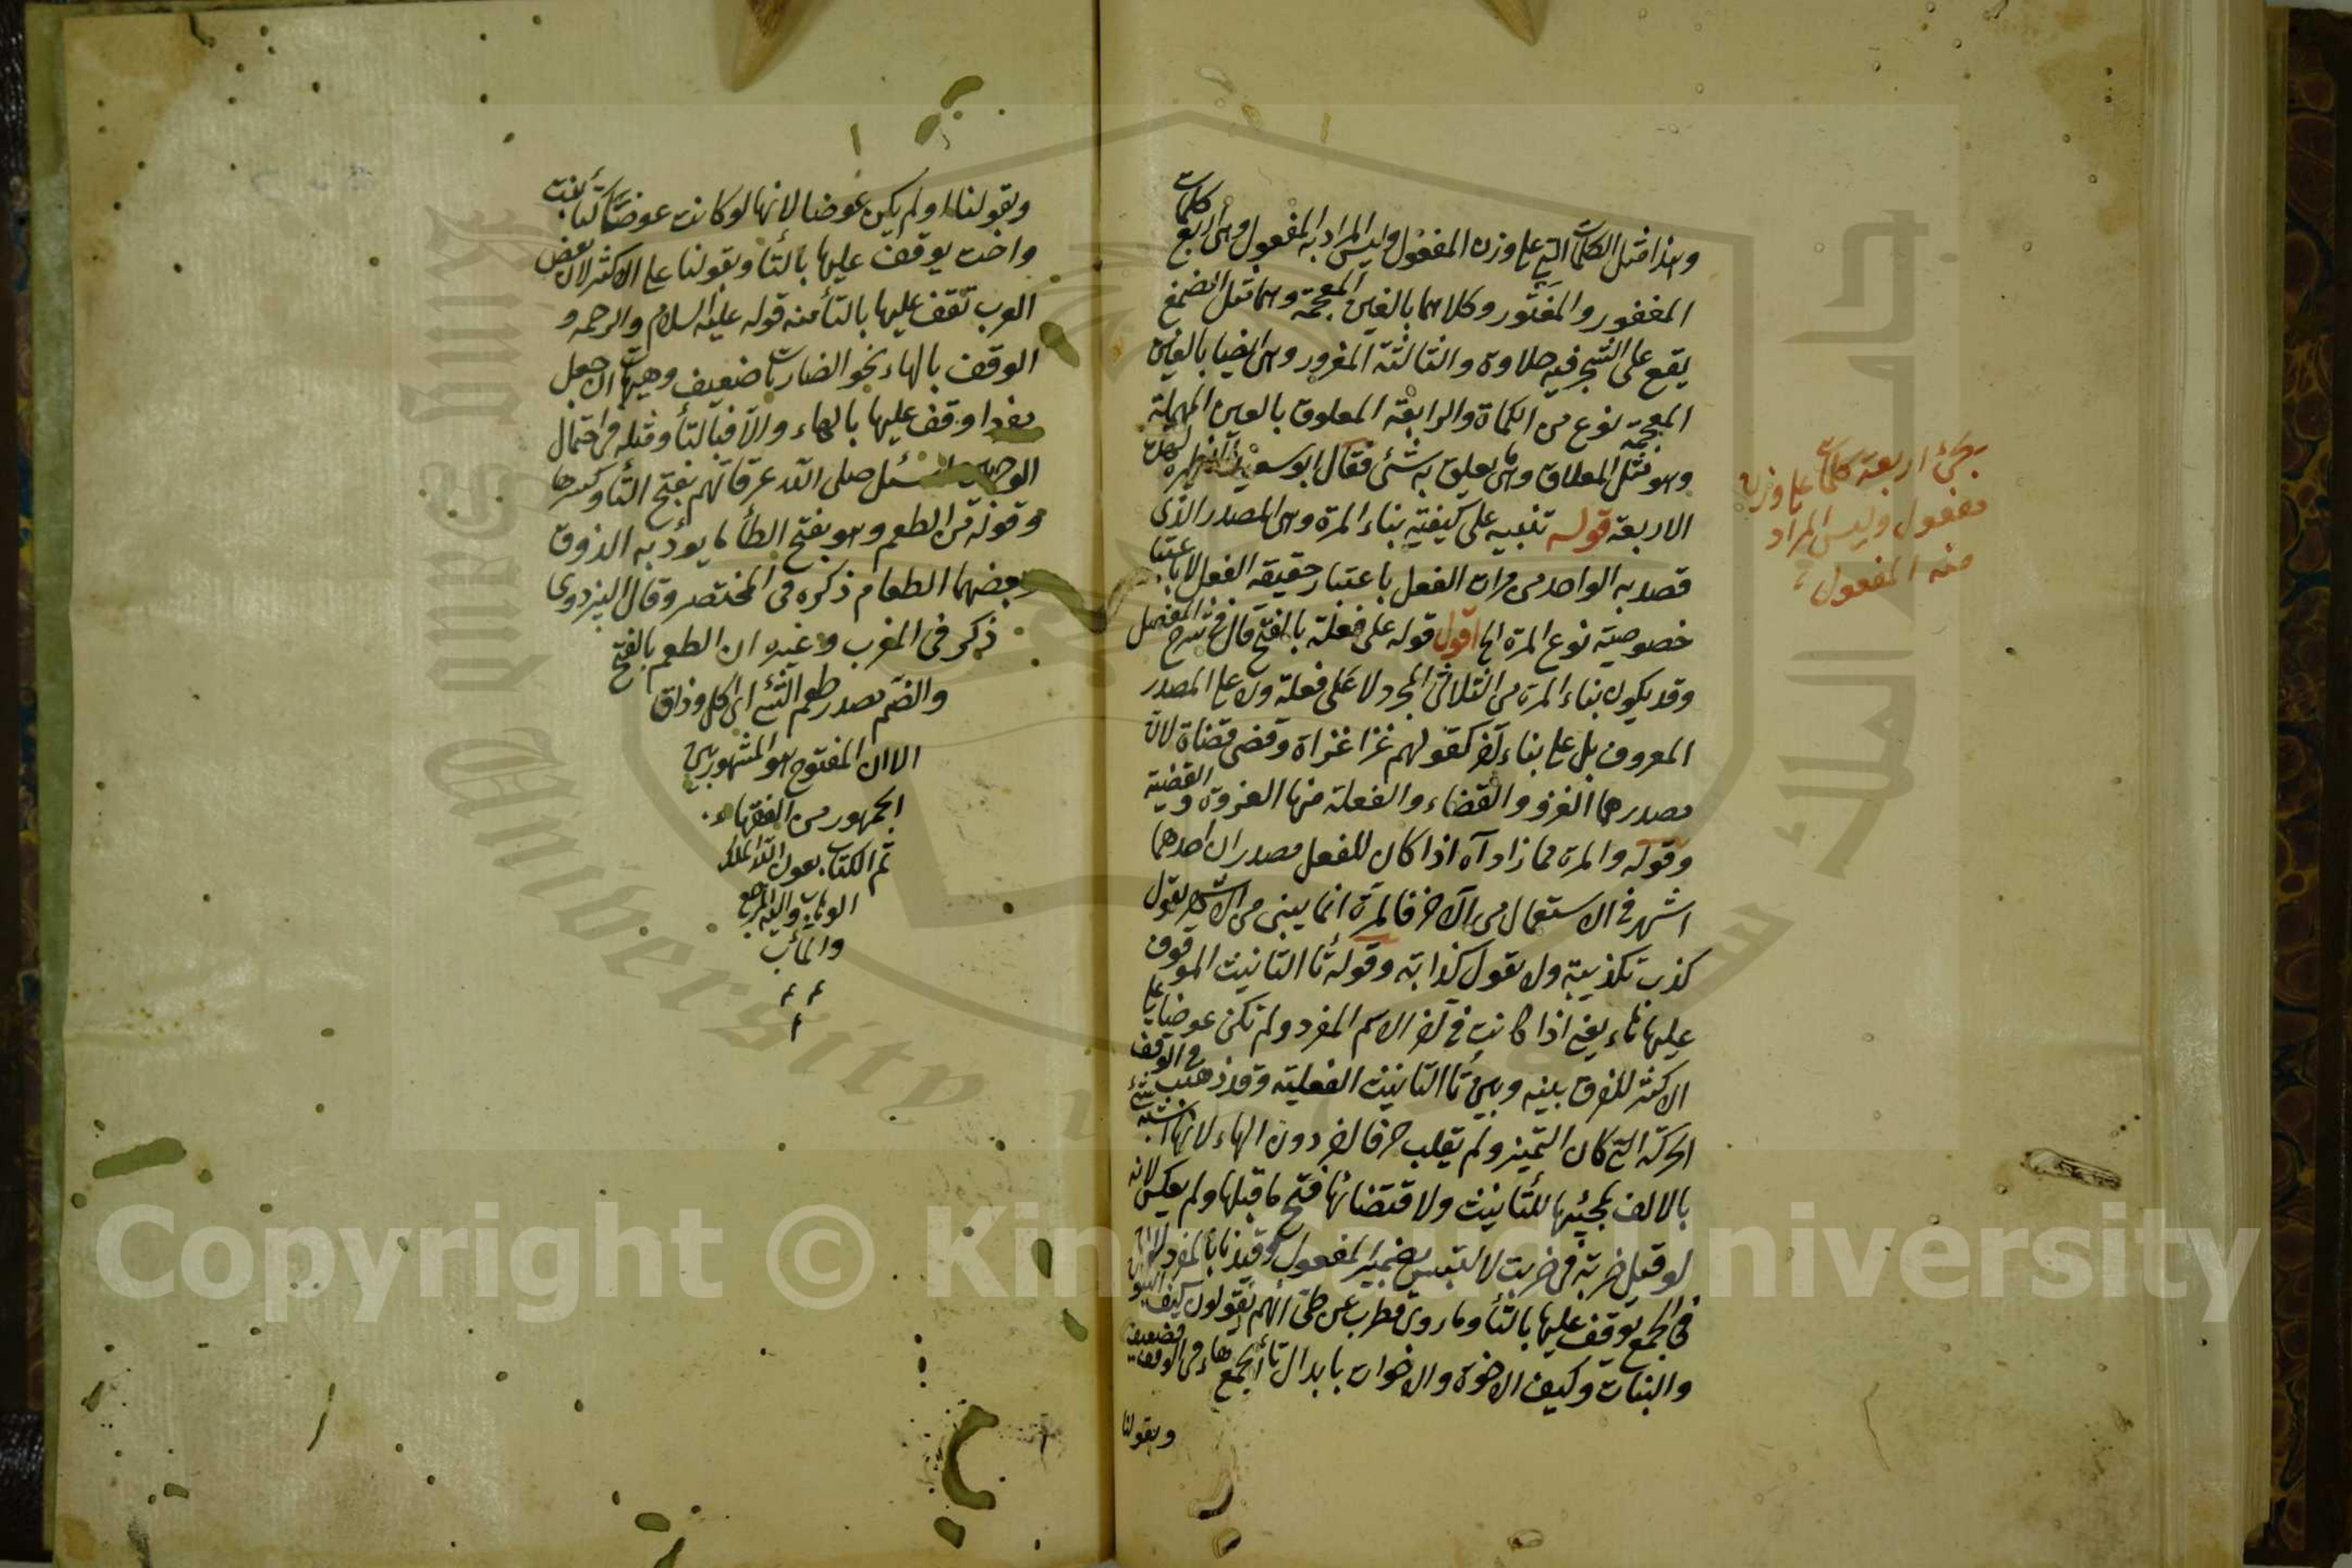 وهذا مثل الكلمات التي على وزن المفعول وليس المراد به المفعول وهي اربع كلمات
المغفور والمغثور وكلاهما بالغين المعجمة وهما مثل الصمغ
يقع على الشجر فيه حلاوة والثالثة المغرور وهي ايضا بالغين
المعجمة نوع من الكماة والرابعة المعلوق بالعين المهملة
وهو مثل المعلاق وهي يعلق به شئ فقال ابو سعيد
الاربعة قوله تنبيه على كيفية بناء المرة وهي المصدر الذي
قصد به الواحد من مرات الفعل باعتبار حقيقة الفعل لا باعتبار
خصوصية نوع المرة الخ اقول قوله على فعلة بالفتح قال في شرح المفصل
وقد يكون بناء المرة من الثلاثي المجرد لا على فعلة ولا على المصدر
المعروف بل على بناء آخر كقولهم غزا غزاة وقضى قضاة لان
مصدرهما الغزو والقضاء والفعلة منها الغزوة والقضية
وقوله والمرة مما زاد آه اذا كان للفعل مصدران احدهما
اشهر في الاستعمال من الآخر فالمرة انما يبنى من الاشهر يقول
كذب تكذيبة ولا يقول كذابة وقوله تا التانيث الموقوف
عليها تاء يعني اذا كانت في آخر الاسم المفرد ولم تكن عوضا على
الاكثر للفرق بينه وبين تا التانيث الفعلية وقد ذهب في الوقف
الحركة التي كان التميز ولم يقلب حرفا آخر دون الهاء لانها اشبه شئ
بالالف لمجيئها للتانيث ولاقتضائها فتح ما قبلها ولم يعكس لانه
لو قيل ضربه في ضربت لالتبس بضمير المفعول وقيدنا بالمفرد لان
في الجمع يوقف عليها بالتأ وما روى قطرب عن طي انهم يقولون كيف البنون
والبنات وكيف الاخوة والاخوات بابدال تأ الجمع هاء في الوقف فضعيف
وبقولنا
يجئ اربعة كلمات على وزن
مفعول وليس المراد
منه المفعول
وبقولنا ولم يكن عوضا لانها لو كانت عوضا كتا بنت
واخت يوقف عليها بالتأ وبقولنا على الاكثر لان بعض
العرب تقف عليها بالتأ منه قوله عليه السلام والرحمه و
الوقف بالهاء نحو الضاربات ضعيف وهيهات ان جعل
مفردا وقف عليها بالهاء والا فبالتأ ومثله في احتمال
الوجهين استأصل الله عرقاتهم بفتح التأ وكسرها
وقوله من الطعم وهو بفتح الطأ ما يؤديه الذوق
وبضمها الطعام ذكره في المختصر وقال اليزدوى
ذكر في المغرب وغيره ان الطعم بالفتح
والضم مصدر طعم الشئ اي اكل وذاق
الا ان المفتوح هو المشهور بين
الجمهور من الفقهاء
تم الكتاب بعون الله الملك
الوهاب واليه المرجع
والمآب